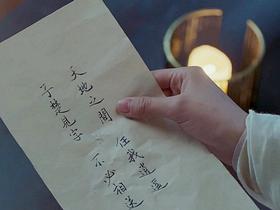 子楚見字
天地之間
任我逍遥
不必相送